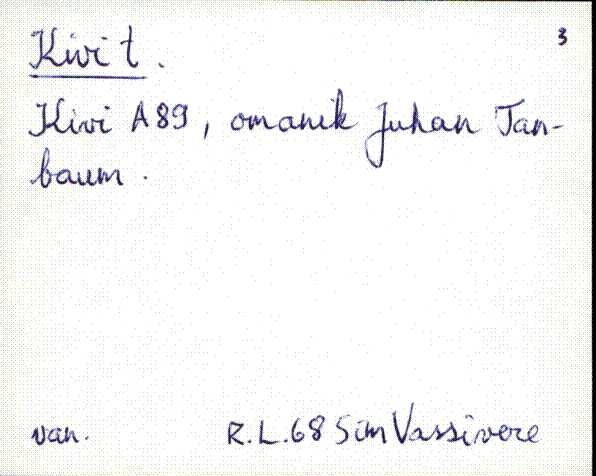 3
Kivi t.
Kivi A89, omanik Juhan Tan-
baum.
van. R.L.68 Sim Vassivere